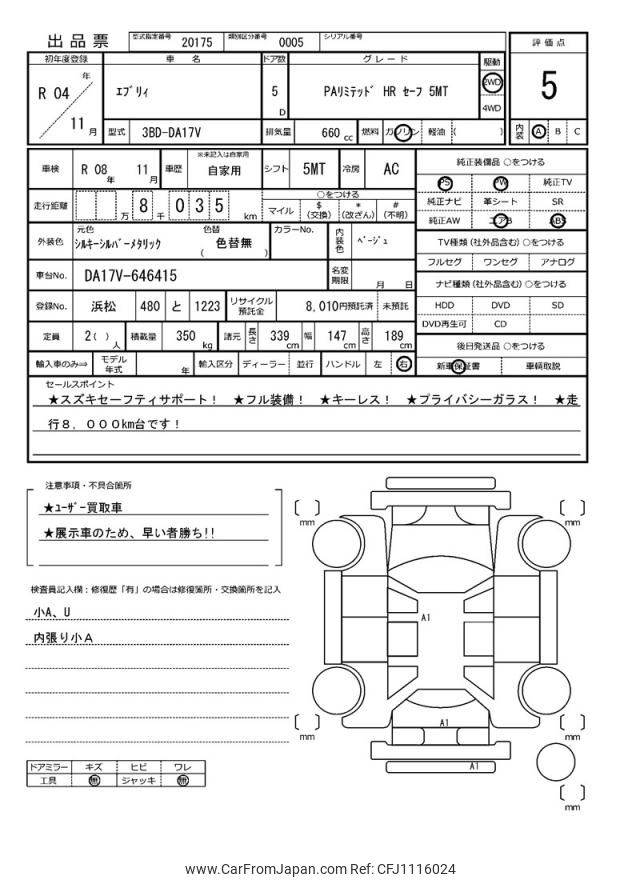 出品票 型式指定番号 20175 類別区分番号 0005 シリアル番号
初年度登録 車名 ドア数 グレード 駆動 評価点
R 04 年 11 月 エブリィ 5 D PAリミテッド HR セーフ 5MT 2WD 4WD 5
型式 3BD-DA17V 排気量 660 cc 燃料 ガソリン 軽油 ( ) 内装 A B C
車検 R 08 年 11 月 車歴 ※未記入は自家用 自家用 シフト 5MT 冷房 AC
走行距離 万 8 千 0 3 5 km ○をつける マイル $ (交換) * (改ざん) # (不明)
外装色 元色 シルキーシルバーメタリック 色替 ( 色替無 ) カラーNo. 内装色 ベージュ
車台No. DA17V-646415 名変期限 月 日
登録No. 浜松 480 と 1223 リサイクル預託金 8,010円預託済 未預託
定員 2( ) 人 積載量 350 kg 諸元 長さ 339 cm 幅 147 cm 高さ 189 cm
輸入車のみ⇒ モデル年式 年 輸入区分 ディーラー 並行 ハンドル 左 右
純正装備品 ○をつける
PS PW 純正TV
純正ナビ 革シート SR
純正AW エアB ABS
TV種類 (社外品含む) ○をつける
フルセグ ワンセグ アナログ
ナビ種類 (社外品含む) ○をつける
HDD DVD SD
DVD再生可 CD
後日発送品 ○をつける
新車保証書 車輌取説
セールスポイント
★スズキセーフティサポート! ★フル装備! ★キーレス! ★プライバシーガラス! ★走
行8.000km台です!
注意事項・不具合箇所
★ユーザー買取車
★展示車のため、早い者勝ち!!
検査員記入欄:修復歴「有」の場合は修復箇所・交換箇所を記入
小A、U
内張り小A
ドアミラー キズ ヒビ ワレ
工具 無 ジャッキ 無
mm
mm
A1
A1
mm
mm
A1
mm
www.CarFromJapan.com Ref: CFJ1116024